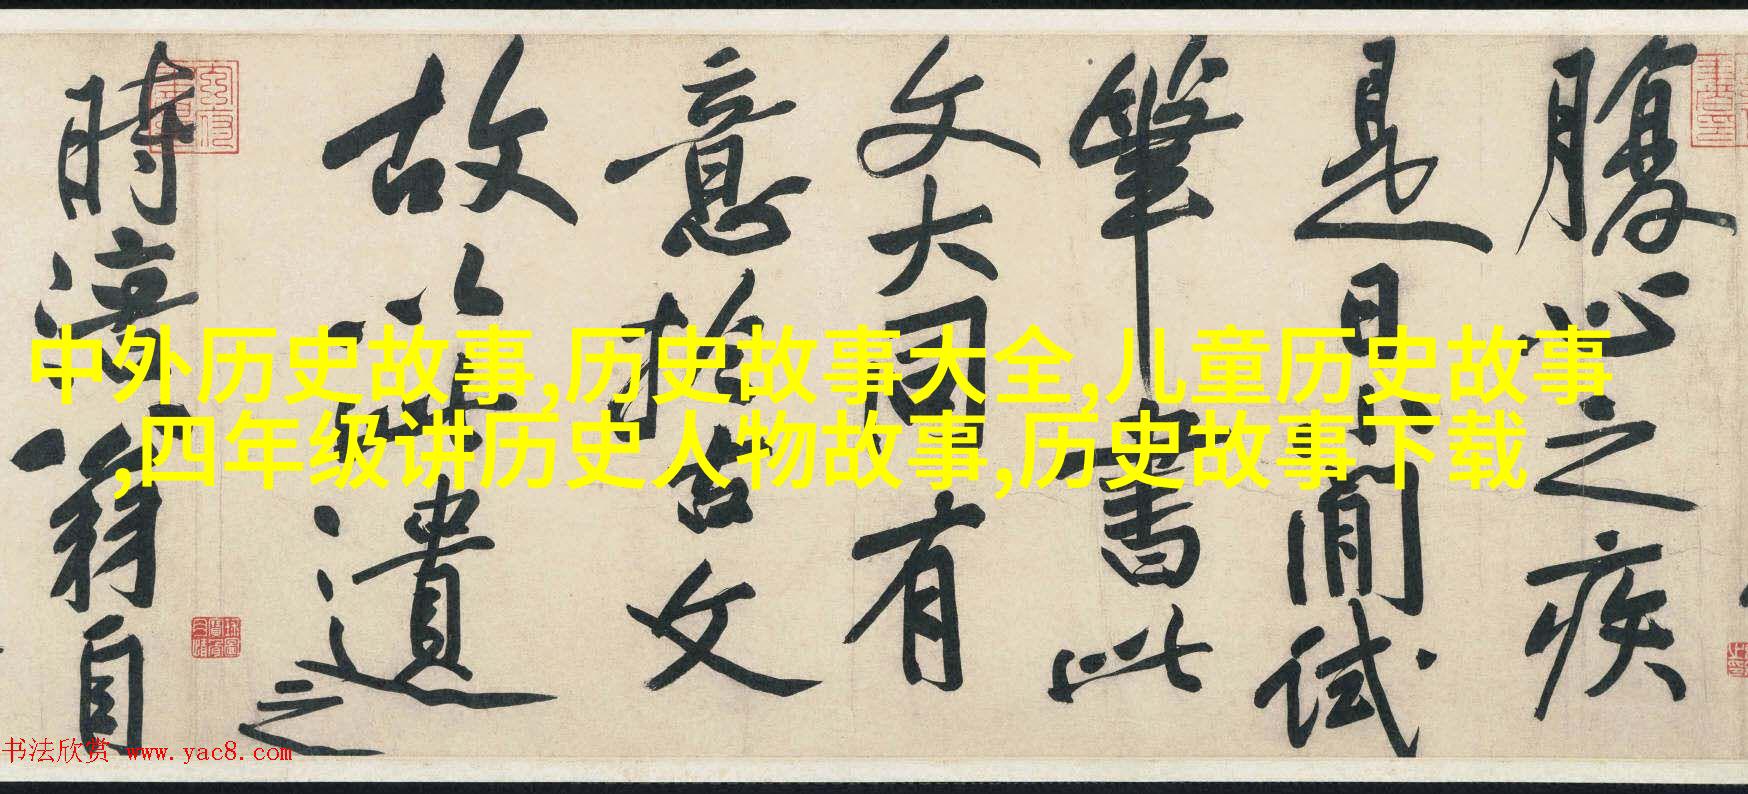 腹心之疾
是日小閒試
筆書此
文大同有
意於古文
故以此遺之
時涪翁自
中外历史故事,历史故事大全,儿童历史故事
,四年级讲历史人物故事,历史故事下载
书法欣赏 www.yac8.com